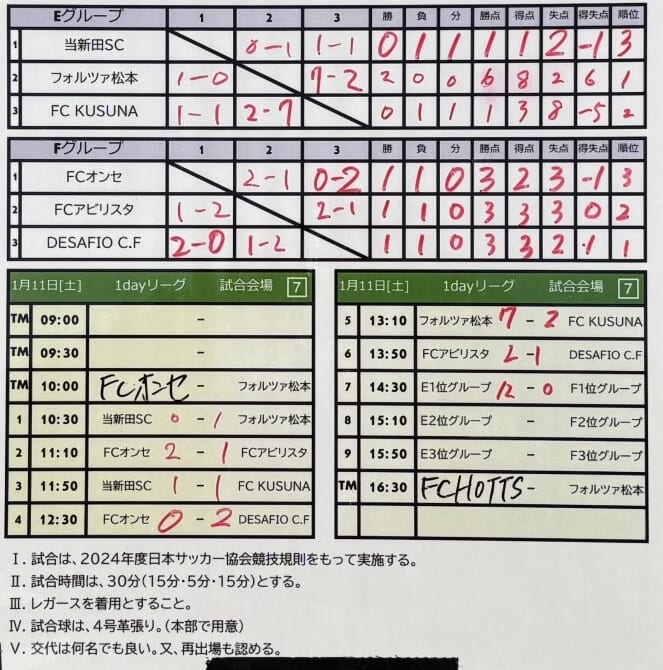 Eグループ 1 2 3 勝 負 分 勝点 得点 失点 得失点 順位
1 当新田SC 0-1 1-1 0 1 1 1 1 2 -1 3
2 フォルツァ松本 1-0 7-2 2 0 0 6 8 2 6 1
3 FC KUSUNA 1-1 2-7 0 1 1 1 3 8 -5 2
Fグループ 1 2 3 勝 負 分 勝点 得点 失点 得失点 順位
1 FCオンセ 2-1 0-2 1 1 0 3 2 3 -1 3
2 FCアビリスタ 1-2 2-1 1 1 0 3 3 3 0 2
3 DESAFIO C.F 2-0 1-2 1 1 0 3 3 2 1
1月11日[土] 1dayリーグ 試合会場 7
TM 09:00 -
TM 09:30 -
TM 10:00 FCオンセ - フォルツァ松本
1 10:30 当新田SC 0 - 1 フォルツァ松本
2 11:10 FCオンセ 2 - 1 FCアビリスタ
3 11:50 当新田SC 1 - 1 FC KUSUNA
4 12:30 FCオンセ 0 - 2 DESAFIO C.F
1月11日[土] 1dayリーグ 試合会場 7
5 13:10 フォルツァ松本 7 - 2 FC KUSUNA
6 13:50 FCアビリスタ 2 - 1 DESAFIO C.F
7 14:30 E1位グループ 12 - 0 F1位グループ
8 15:10 E2位グループ - F2位グループ
9 15:50 E3位グループ - F3位グループ
TM 16:30 FCHOTTS - フォルツァ松本
Ⅰ. 試合は、2024年度日本サッカー協会競技規則をもって実施する。
Ⅱ. 試合時間は、30分(15分・5分・15分)とする。
Ⅲ. レガースを着用とすること。
Ⅳ. 試合球は、4号革張り。(本部で用意)
Ⅴ. 交代は何名でも良い。又、再出場も認める。